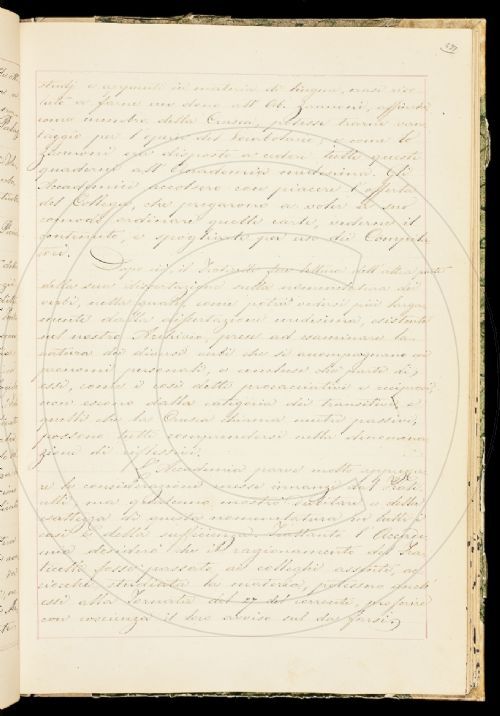 studj e argomenti in materia di lingua, erasi riso
luto di farne un dono all' Ab. Zannoni, affinchè
come membro della Crusca, potesse trarne van
taggio per l'opera del Vocabolario, e come lo
Zannoni era disposto a cedere tutti questi
quaderni all' Accademia medesima. Gli
Accademici accolsero con piacere l'offerta
del Collega, che pregarono a voler a suo
comodo ordinare quelle carte, vederne il
contenuto, e spogliarle per uso dei Compila
tori.
Dopo ciò, il fece lettura dell' altra parte
della sua dissertazione sulla nomenclatura dei
verbi, nella quale come potrà vedersi più larga
mente dalla dissertazione medesima, esistente
nel nostro Archivio, prese ad esaminare la
natura dei diversi verbi che si accompagnano coi
pronomi personali, e concluse che parte di
essi, come i così detti e reciproci,
non escono dalla categoria dei transitivi, e
quelli che la Crusca chiama neutri passivi,
possono tutti comprendersi sulla denomina
zione di riflessivi.
L'Accademia parve molto apprezza
re le considerazioni messe innanzi dal
ma qualcuno mostrò dubitare o della
esattezza di questa nomenclatura in tutti i
casi o della sufficienza. Frattanto l'Accade
mia desiderò che il ragionamento del
fosse passato ai colleghi assenti, ac
ciocchè studiata la materia, potessero anch'
essi alla Tornata del 27 del corrente, proferire
con coscienza il loro avviso sul da farsi.